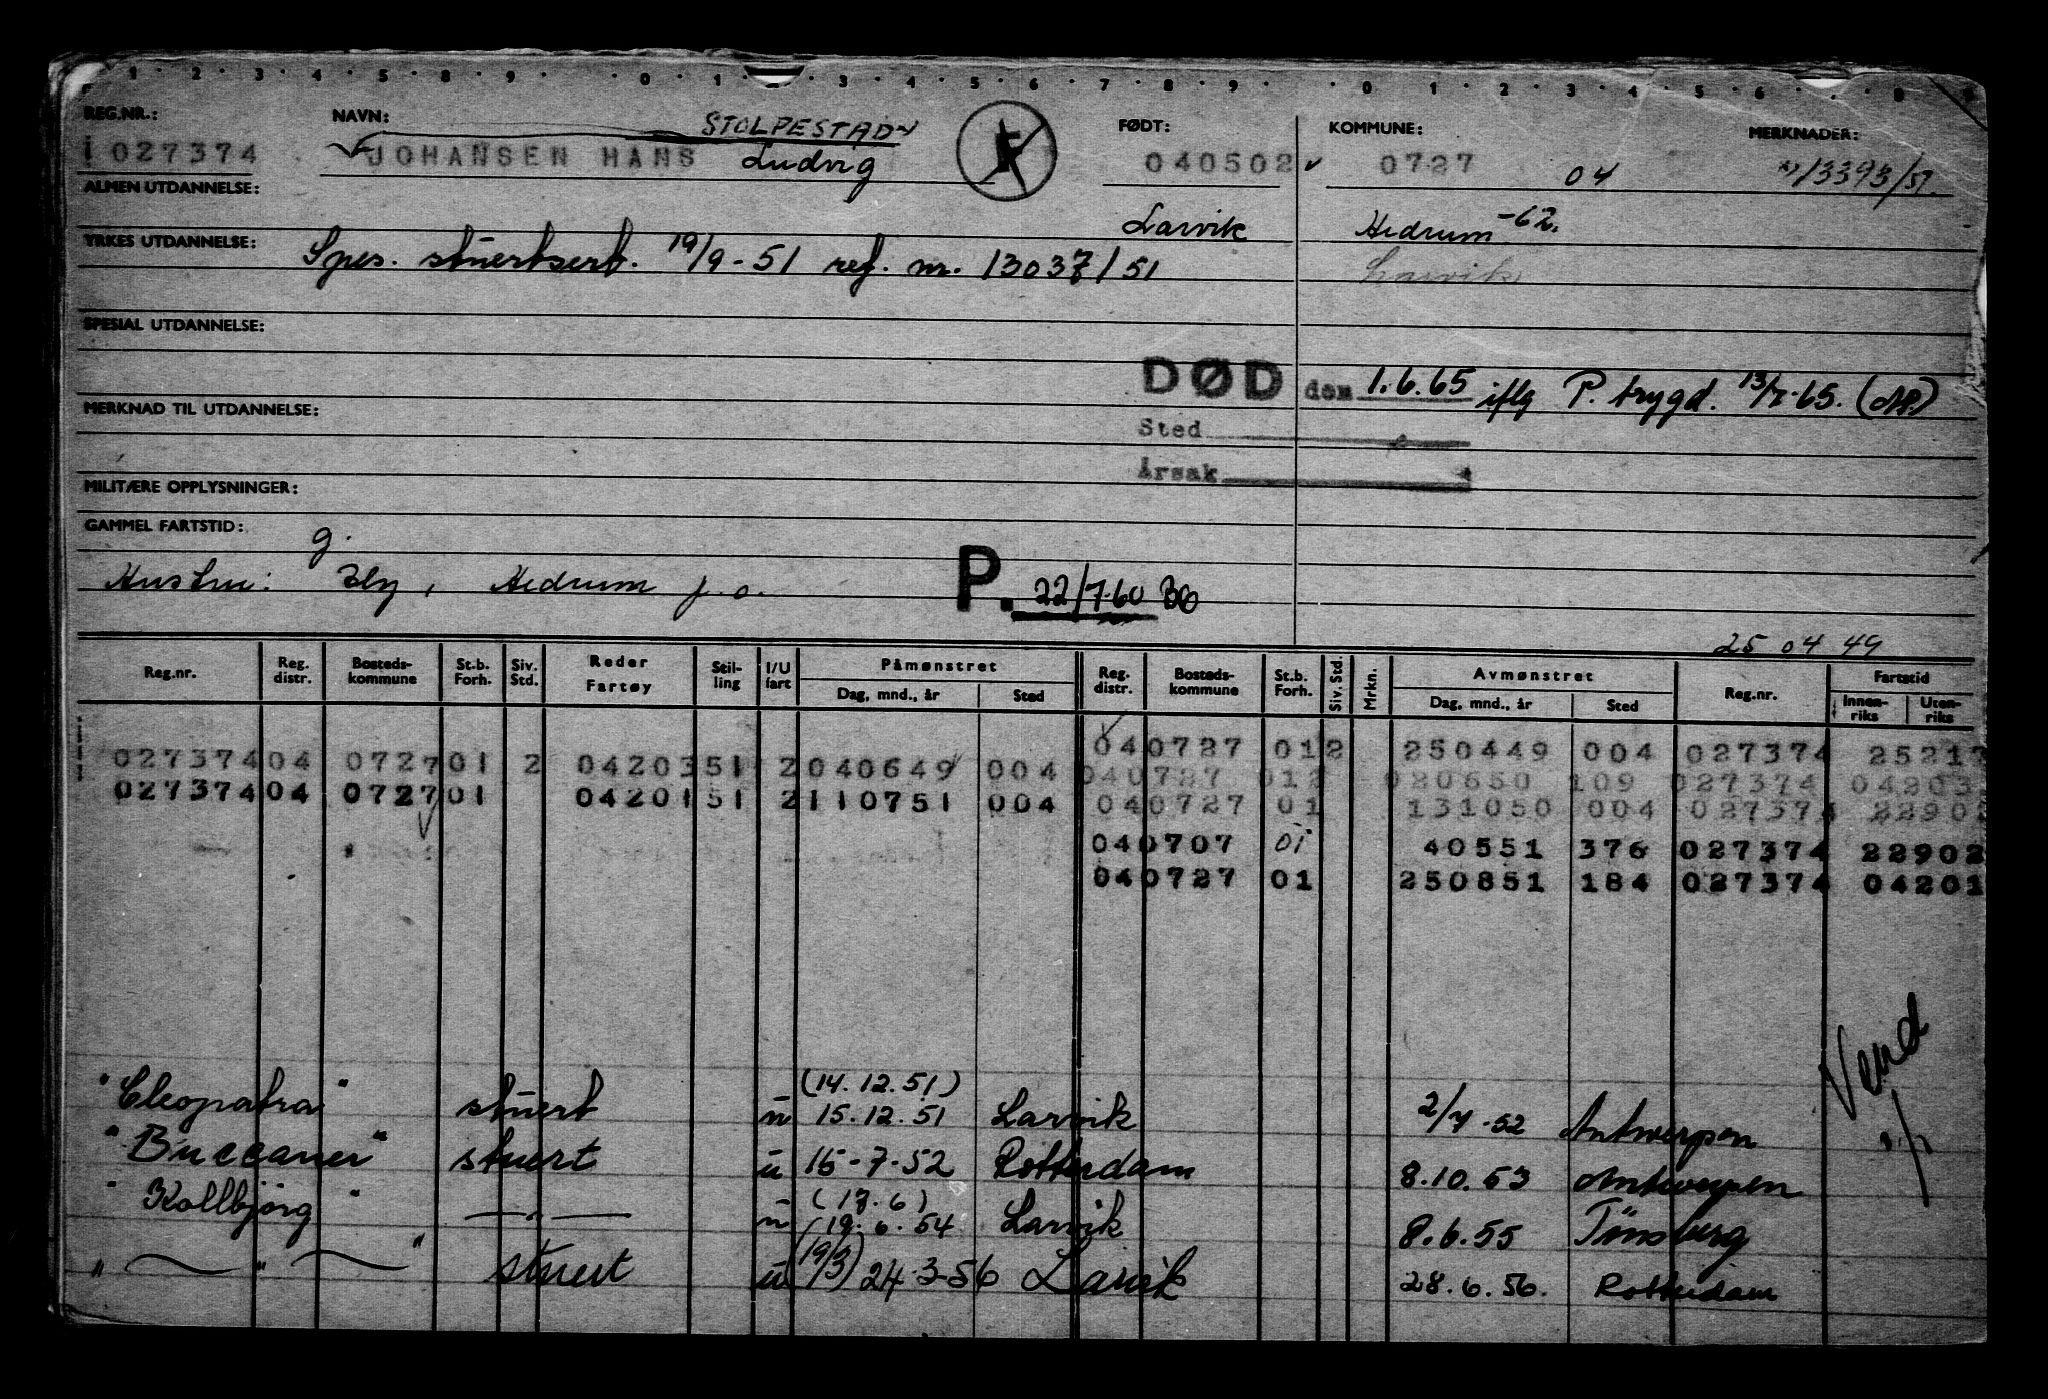 1 · 2 · 3 · 4 · 5 · 8 · 9 · · 0 · 1 · 3 · 4 · 5 · 6 · 7 · 8 · 9 · · 0 · 1 · 2 · 3 · 4 · 5 · 6 · 8
REG.NR.: NAVN: STOLPESTAD FØDT: KOMMUNE: MERKNADER:
027374 JOHANSEN HANS Ludvig 040502 0727 04 13393/51.
ALMEN UTDANNELSE:
Larvik Hedrum -62.
YRKES UTDANNELSE: Spes. stuertsert. 19/9-51 ref. nr. 13037/51 Larvik
SPESIAL UTDANNELSE:
DØD den 1.6.65 iflg P. trygd. 13/7-65.
MERKNAD TIL UTDANNELSE:
Sted
Årsak
MILITÆRE OPPLYSNINGER:
GAMMEL FARTSTID: g.
Hustru: Hedrum p.o. P. 22/7-60
25 04 49
Reg.nr. Reg. distr. Bosteds-kommune St.b. Forh. Siv. Std. Reder Fartøy Stil-ling I/U fart Påmønstret Dag, mnd., år Sted Reg. distr. Bosteds-kommune St.b. Forh. Siv. Std. Mrkn. Avmønstret Dag, mnd., år Sted Reg.nr. Fartstid Innen-riks Uten-riks
040727 012 250449 004 027374 25217
027374 04 0727 01 2 04203 51 2 040649 004 040727 012 020650 109 027374 04203
027374 04 0727 01 04201 51 2 110751 004 040727 01 131050 004 027374 22902
040707 01 40551 376 027374 22902
040727 01 250851 184 027374 04201
Vend
(14.12.51)
"Cleopatra" stuert u 15.12.51 Larvik 2/7-52 Antwerpen
"Buccaner" stuert u 15-7-52 Rotterdam 8.10.53 Antwerpen
(17.6)
"Kollbjørg" —"— u 19.6.54 Larvik 8.6.55 Tønsberg
" — " — " stuert u (19/3) 24-3-56 Larvik 28.6.56. Rotterdam